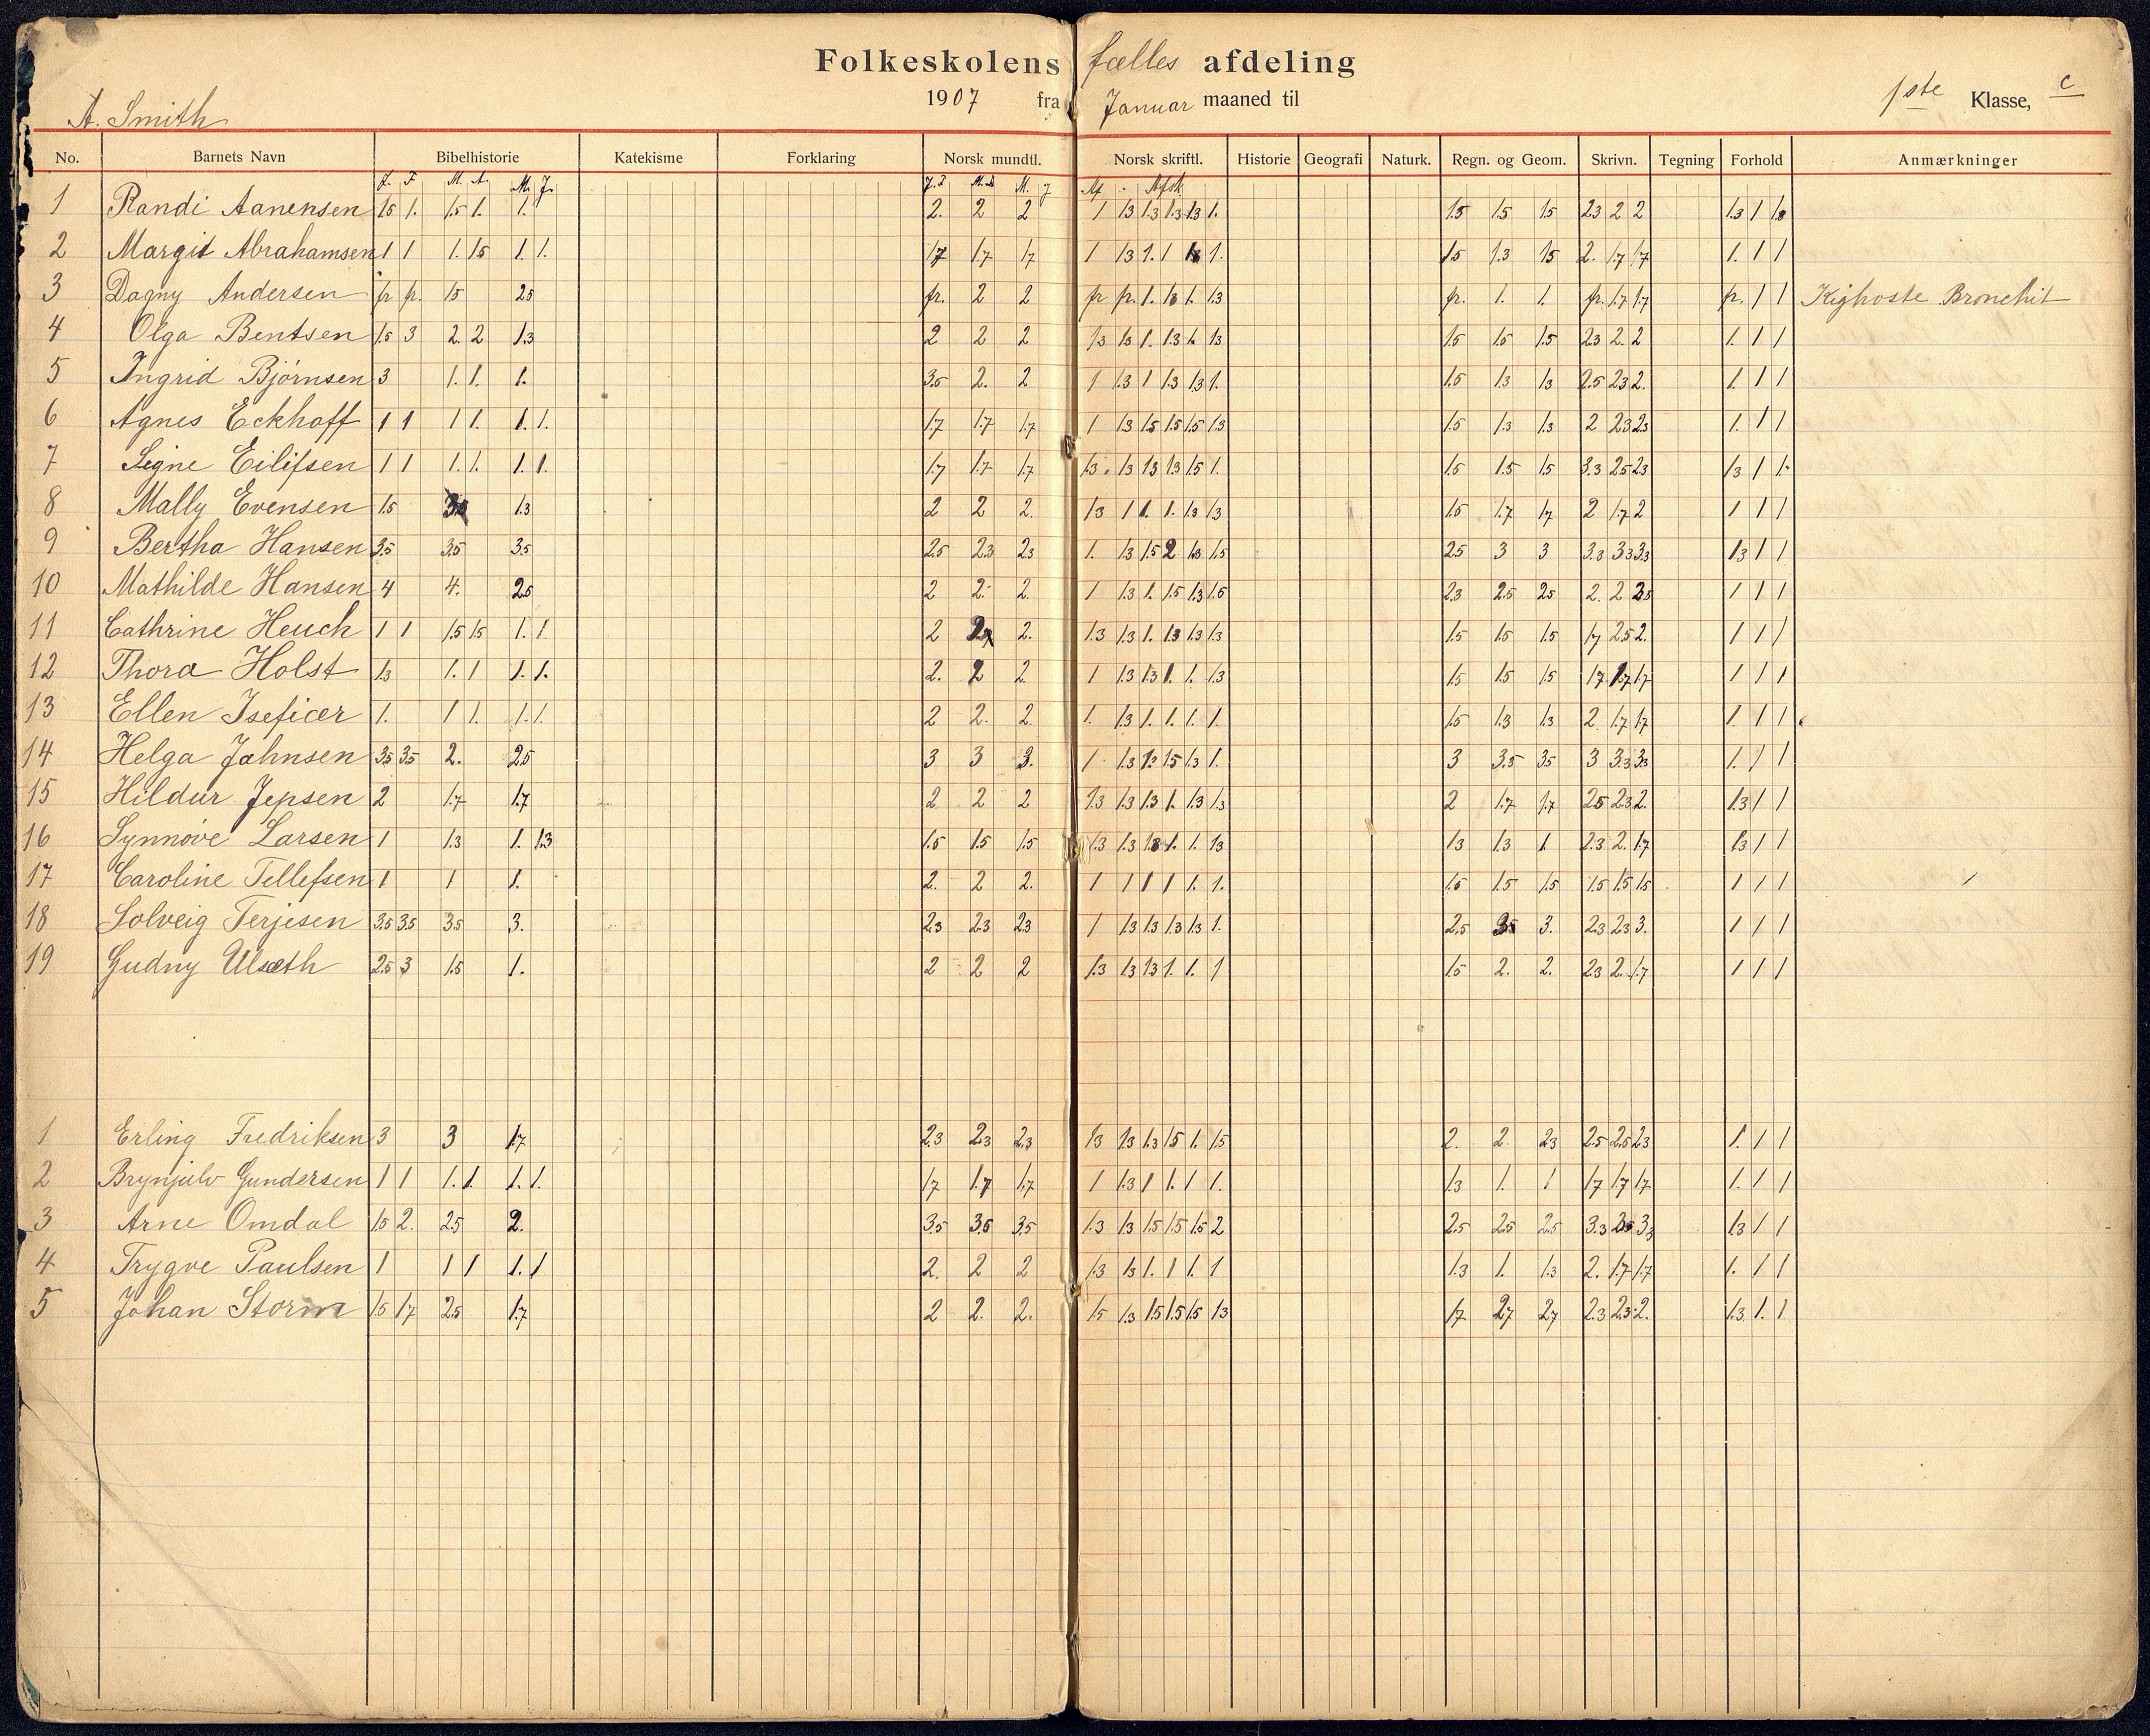 Folkeskolens fælles afdeling
1907 fra Januar maaned til
1ste Klasse, c
A. Smith
No. Barnets Navn Bibelhistorie Katekisme Forklaring Norsk mundtl. Norsk skriftl. Historie Geografi Naturk. Regn. og Geom. Skrivn. Tegning Forhold Anmærkninger
1 Randi Aanensen 1.5 1. 1.5 1. 1. 2. 2 2 1 1.3 1.3 1.3 1.3 1. 1.5 1.5 1.5 2.3 2 2 1.3 1
2 Margit Abrahamsen 1 1 1. 1.5 1. 1. 1.7 1.7 1.7 1 1.3 1. 1 1. 1.5 1.3 1.5 2. 1.7 1.7 1. 1 1
3 Dagny Andersen fr fr. 1.5 2.5 fr. 2 2 fr fr. 1. 1.3 1. 1.3 fr. 1. 1. fr. 1.7 1.7 fr. 1 1 Kighoste Bronchit
4 Olga Bentsen 1.5 3 2. 2 1.3 2 2 2 1.3 1.3 1. 1.3 1. 1.3 1.5 1.5 1.5 2.3 2. 2 1. 1 1
5 Ingrid Bjørnsen 3 1. 1. 1. 3.5 2. 2 1 1.3 1 1.3 1.3 1. 1.5 1.3 1.3 2.5 2.3 2. 1. 1 1
6 Agnes Eckhoff 1 1 1 1. 1. 1. 1.7 1.7 1.7 1 1.3 1.5 1.5 1.5 1.3 1.5 1.3 1.3 2 2.3 2.3 1. 1 1
7 Signe Eilifsen 1 1 1. 1. 1. 1. 1.7 1.7 1.7 1.3. 1.3 1.3 1.3 1.5 1. 1.5 1.5 1.5 3.3 2.5 2.3 1.3 1 1.
8 Mally Evensen 1.5 1.3 2 2 2. 1.3 1 1. 1. 1.3 1.3 1.5 1.7 1.7 2 1.7 2 1 1 1
9 Bertha Hansen 3.5 3.5 3.5 2.5 2.3 2.3 1. 1.3 1.5 2 1.3 1.5 2.5 3 3 3.3 3.3 3.3 1.3 1 1
10 Mathilde Hansen 4 4. 2.5 2 2. 2. 1 1.3 1. 1.5 1.3 1.5 2.3 2.5 2.5 2. 2 1 1 1
11 Cathrine Heuch 1 1 1.5 1.5 1. 1. 2 2. 1.3 1.3 1. 1.3 1.3 1.3 1.5 1.5 1.5 1.7 2.5 2. 1 1 1
12 Thora Holst 1.3 1. 1 1. 1. 2. 2 2. 1 1.3 1.3 1. 1. 1.3 1.5 1.5 1.5 1.7 1.7 1.7 1 1 1
13 Ellen Isefiær 1. 1 1. 1. 1. 2 2. 2. 1. 1.3 1. 1. 1. 1. 1.5 1.3 1.3 2 1.7 1.7 1. 1 1
14 Helga Jahnsen 3.5 3.5 2. 2.5 3 3 3. 1 1.3 1.5 1.3 1. 3 3.5 3.5 3 3.3 3.3 1. 1 1
15 Hildur Jepsen 2 1.7 1.7 2 2 2 1.3 1.3 1.3 1. 1.3 1.3 2 1.7 1.7 2.5 2.3 2. 1.3 1 1
16 Synnøve Larsen 1 1.3 1. 1.3 1.5 1.5 1.5 1.3 1.3 1.3 1. 1. 1.3 1.3 1.3 1. 2.3 2. 1.7 1.3 1 1
17 Caroline Tellefsen 1 1 1. 2. 2 2. 1 1 1 1 1. 1. 1.5 1.5 1.5 1.5 1.5 1.5 1 1 1
18 Solveig Terjesen 3.5 3.5 3.5 3. 2.3 2.3 2.3 1 1.3 1.3 1.3 1.3 1. 2.5 3. 2.3 2.3 3. 1 1 1
19 Gudny Ulsæth 2.5 3 1.5 1. 2 2 2 1.3 1.3 1.3 1. 1. 1 1.5 2. 2. 2.3 2. 1.7 1 1 1
1 Erling Fredriksen 3 3 1.7 2.3 2.3 2.3 1.3 1.3 1.3 1.5 1. 1.5 2. 2. 2.3 2.5 2.5 2.3 1. 1 1
2 Brynjulv Gundersen 1 1 1. 1. 1. 1. 1.7 1.7 1.7 1 1.3 1 1. 1 1. 1.3 1. 1 1.7 1.7 1.7 1. 1 1
3 Arne Omdal 1.5 2. 2.5 2. 3.5 3.5 3.5 1.3 1.3 1.5 1.5 1.5 2 2.5 2.5 2.5 3.3 3.3 1.3 1 1
4 Trygve Paulsen 1 1 1 1. 1 2. 2 2 1.3 1.3 1. 1 1. 1 1.3 1. 1.3 2. 1.7 1.7 1. 1 1
5 Johan Storm 1.5 1.7 2.5 1.7 2 2. 2. 1.5 1.3 1.5 1.5 1.5 1.3 1.7 2.7 2.7 2.3 2.3 2. 1.3. 1. 1